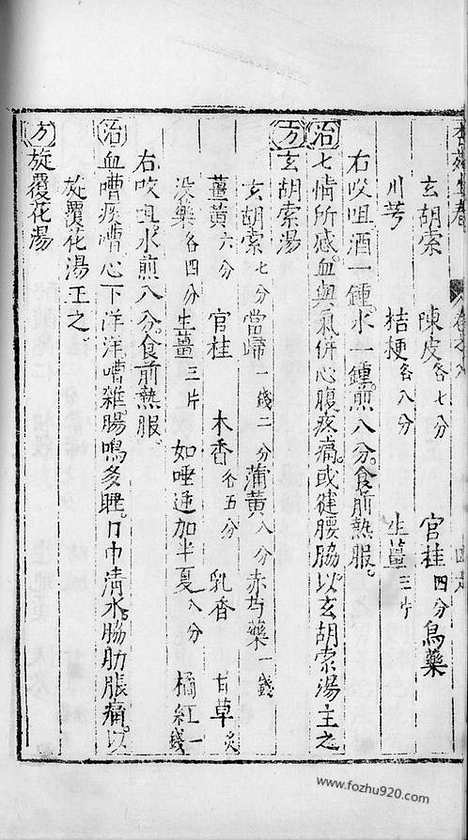 玄胡索　陳皮各七分　官桂四分　烏藥
川芎　桔梗各八分　生薑三片
右㕮咀酒一鍾水一鍾煎八分食前熱服。
治七情所感血與氣併心腹疼痛。或徤腰脇。以玄胡索湯主之
方玄胡索湯
玄胡索七分　當歸一錢二分　蒲黃八分　赤芍藥一錢
薑黃六分　官桂　木香各五分　乳香　甘草炙
沒藥各四分　生薑三片　如唾逆加半夏八分　橘紅一錢
右㕮咀水煎八分。食前熱服
治血嘈痰嘈心下洋洋嘈雜腸鳴多唾。口中清水。脇肋脹痛。以
旋覆花湯主之
方旋覆花湯
www.fozhu920.com